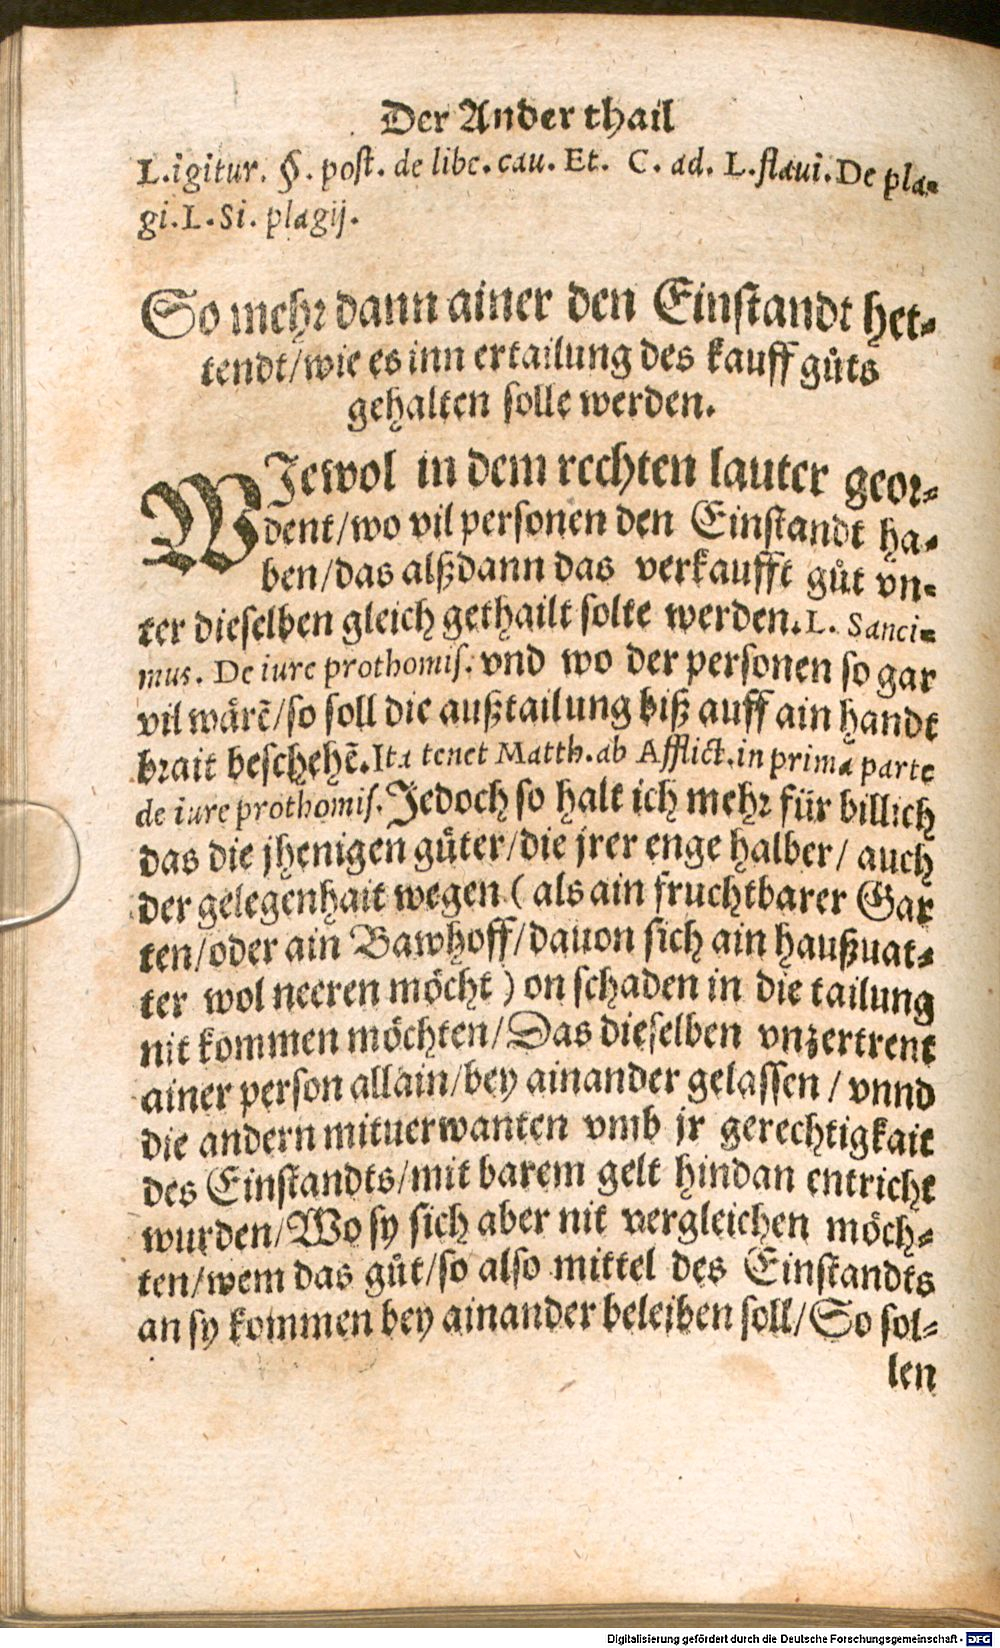 Der Ander thail
L. igitur. §. post. de libe. cau. Et. C. ad. L. flaui. De pla-
gi. L. Si. plagij.
So mehr dann ainer den Einstandt het-
tendt/wie es inn ertailung des kauff gůts
gehalten solle werden.
WJewol in dem rechten lauter geor-
dent/wo vil personen den Einstandt ha-
ben/das alßdann das verkaufft gůt vn-
ter dieselben gleich gethailt solte werden. L. Sanci-
mus. De iure prothomis. vnd wo der personen so gar
vil wårẽ/so soll die außtailung biß auff ain handt
brait beschehẽ. Ita tenet Matth. ab Afflict. in prima parte
de iure prothomis. Jedoch so halt ich mehr für billich
das die jhenigen gůter/die jrer enge halber/ auch
der gelegenhait wegen ( als ain fruchtbarer Gar
ten/oder ain Bawhoff/dauon sich ain haußuat-
ter wol neeren möcht ) on schaden in die tailung
nit kommen möchten/Das dieselben vnzertrent
ainer person allain/bey ainander gelassen / vnnd
die andern mituerwanten vmb jr gerechtigkait
des Einstandts/mit barem gelt hindan entricht
wurden/Wo sy sich aber nit vergleichen möch-
ten/wem das gůt/so also mittel des Einstandts
an sy kommen bey ainander beleiben soll/So sol-
len
Digitalisierung gefördert durch die Deutsche Forschungsgemeinschaft - DFG